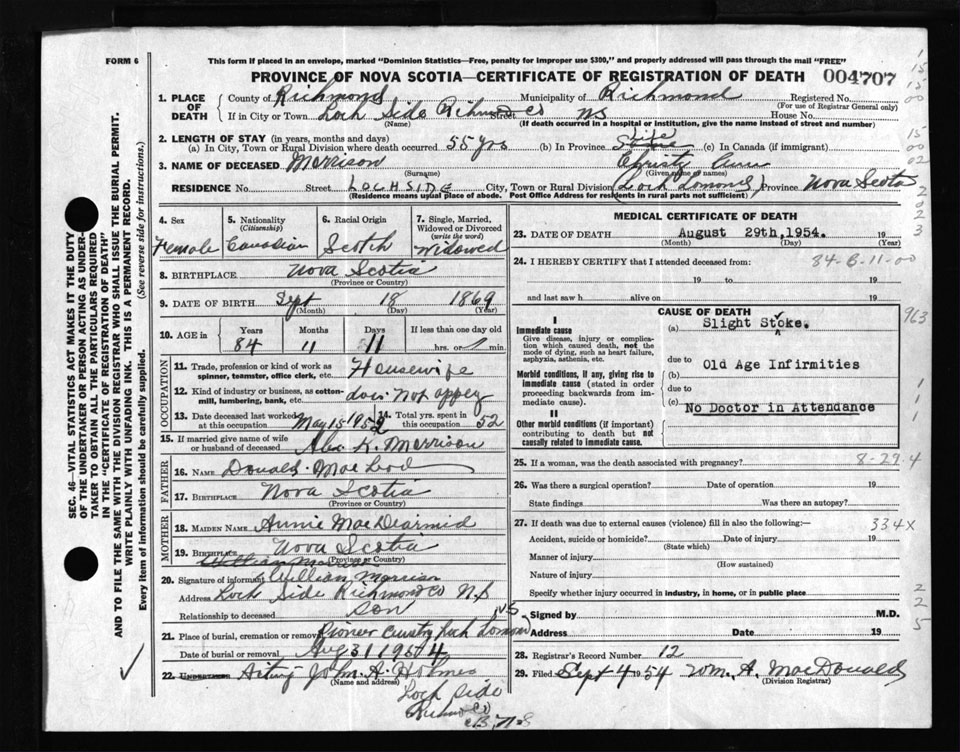 FORM 6
This form if placed in an envelope, marked "Dominion Statistics—Free, penalty for improper use $300," and properly addressed will pass through the mail "FREE"
PROVINCE OF NOVA SCOTIA—CERTIFICATE OF REGISTRATION OF DEATH 004707
SEC. 46—VITAL STATISTICS ACT MAKES IT THE DUTY
OF THE UNDERTAKER OR PERSON ACTING AS UNDER-
TAKER TO OBTAIN ALL THE PARTICULARS REQUIRED
IN THE "CERTIFICATE OF REGISTRATION OF DEATH"
AND TO FILE THE SAME WITH THE DIVISION REGISTRAR WHO SHALL ISSUE THE BURIAL PERMIT.
WRITE PLAINLY WITH UNFADING INK. THIS IS A PERMANENT RECORD.
Every item of information should be carefully supplied. (See reverse side for instructions.)
1. PLACE OF DEATH
County of Richmond Municipality of Richmond Registered No.
(For use of Registrar General only)
If in City or Town Loch Side Richmond Co Street NS House No.
(Name) (If death occurred in a hospital or institution, give the name instead of street and number)
2. LENGTH OF STAY (in years, months and days)
(a) In City, Town or Rural Division where death occurred 55 yrs (b) In Province Life (c) In Canada (if immigrant)
3. NAME OF DECEASED Morrison Christy Ann
(Surname) (Given name or names)
RESIDENCE No. Street LOCHSIDE City, Town or Rural Division (Loch Lomond) Province Nova Scotia
(Residence means usual place of abode. Post Office Address for residents in rural parts not sufficient)
4. Sex
Female
5. Nationality
(Citizenship)
Canadian
6. Racial Origin
Scotch
7. Single, Married,
Widowed or Divorced
(write the word)
Widowed
8. BIRTHPLACE Nova Scotia
(Province or Country)
9. DATE OF BIRTH Sept 18 1869
(Month) (Day) (Year)
10. AGE in Years Months Days If less than one day old
84 11 11 hrs. or min.
OCCUPATION
11. Trade, profession or kind of work as
spinner, teamster, office clerk, etc. Housewife
12. Kind of industry or business, as cotton-
mill, lumbering, bank, etc. does not apply
13. Date deceased last worked
at this occupation May 15 1952
14. Total yrs. spent
in this occupation 52
15. If married give name of wife
or husband of deceased Alex. K. Morrison
FATHER
16. NAME Donald MacLeod
17. BIRTHPLACE Nova Scotia
(Province or Country)
MOTHER
18. MAIDEN NAME Annie MacDearmid
19. BIRTHPLACE Nova Scotia
(Province or Country)
20. Signature of informant William Morrison
Address Loch Side Richmond Co N.S
Relationship to deceased Son
21. Place of burial, cremation or removal Pioneer Cemetry Loch Lomond NS
Date of burial or removal Aug 31 1954
22. UNDERTAKER Acting John. A. Holmes
(Name and address)
Loch Side
Richmond Co
C.B. N.S
MEDICAL CERTIFICATE OF DEATH
23. DATE OF DEATH August 29th, 1954. 19
(Month) (Day) (Year)
24. I HEREBY CERTIFY that I attended deceased from: 84-8-11-00
19 to 19
and last saw h alive on 19
CAUSE OF DEATH 963
I
Immediate cause
Give disease, injury or complica-
tion which caused death, not the
mode of dying, such as heart failure,
asphyxia, asthenia, etc.
(a) Slight Stoke.
due to
Morbid conditions, if any, giving rise to
immediate cause (stated in order
proceeding backwards from im-
mediate cause).
(b) Old Age Infirmities
due to
II
(c) No Doctor in Attendance
Other morbid conditions (if important)
contributing to death but not
causally related to immediate cause.
25. If a woman, was the death associated with pregnancy? 8-29-4
26. Was there a surgical operation? Date of operation 19
State findings Was there an autopsy?
27. If death was due to external causes (violence) fill in also the following:— 334X
Accident, suicide or homicide? Date of injury 19
(State which)
Manner of injury
(How sustained)
Nature of injury
Specify whether injury occurred in industry, in home, or in public place
Signed by M.D.
Address Date 19
28. Registrar's Record Number 12
29. Filed Sept 4 1954 Wm. A. MacDonald
(Division Registrar)